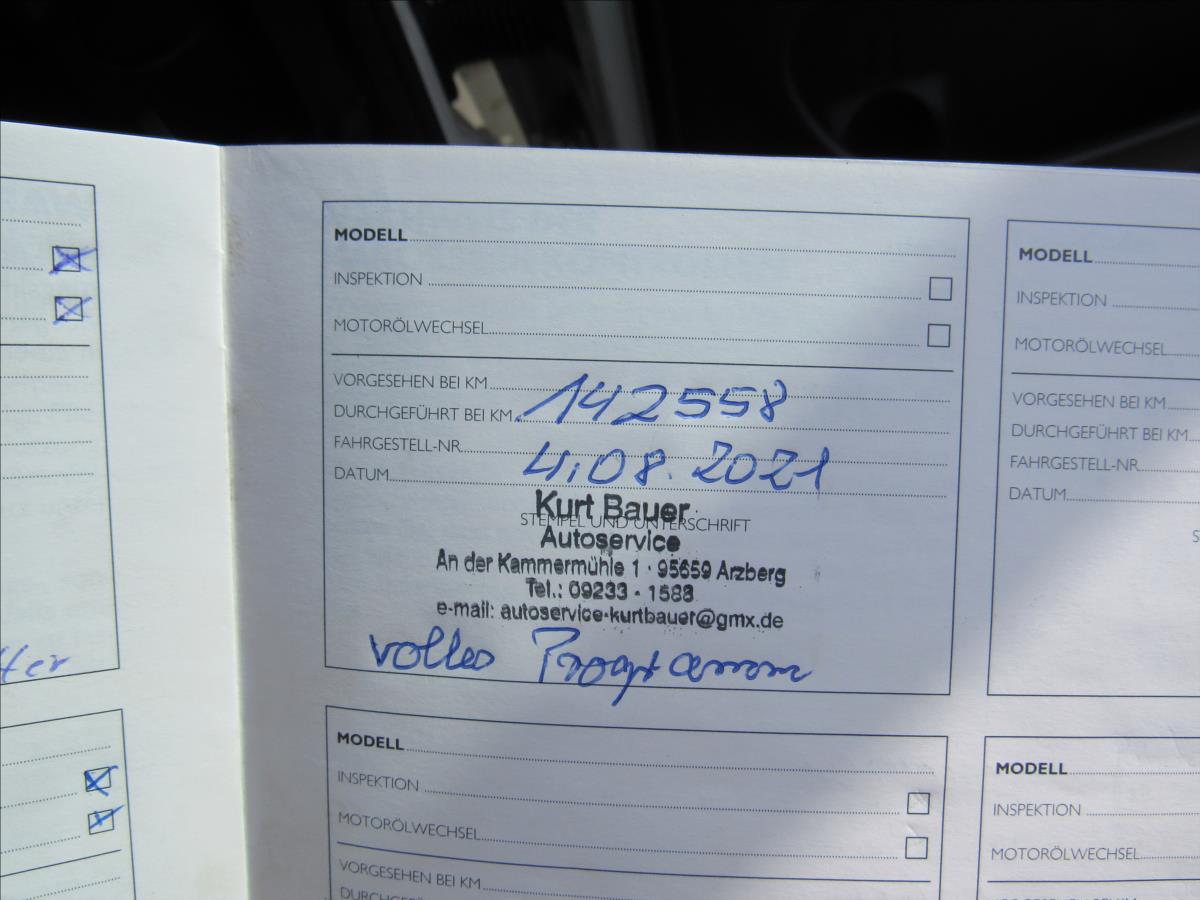 MODELL
INSPEKTION
MOTORÖLWECHSEL
VORGESEHEN BEI KM
142558
DURCHGEFÜHRT BEI KM
FAHRGESTELL-NR.
4.08.2021
DATUM
Kurt Bauer
STEMPEL UND UNTERSCHRIFT
Autoservice
An der Kammermühle 1 · 95659 Arzberg
Tel.: 09233 - 1588
e-mail: autoservice-kurtbauer@gmx.de
volles Programm
MODELL
INSPEKTION
MOTORÖLWECHSEL
VORGESEHEN BEI KM
DURCHGEFÜHRT
MODELL
INSPEKTION
MOTORÖLWECHSEL
VORGESEHEN BEI KM
DURCHGEFÜHRT BEI KM
FAHRGESTELL-NR.
DATUM
S
MODELL
INSPEKTION
MOTORÖLWECHSEL